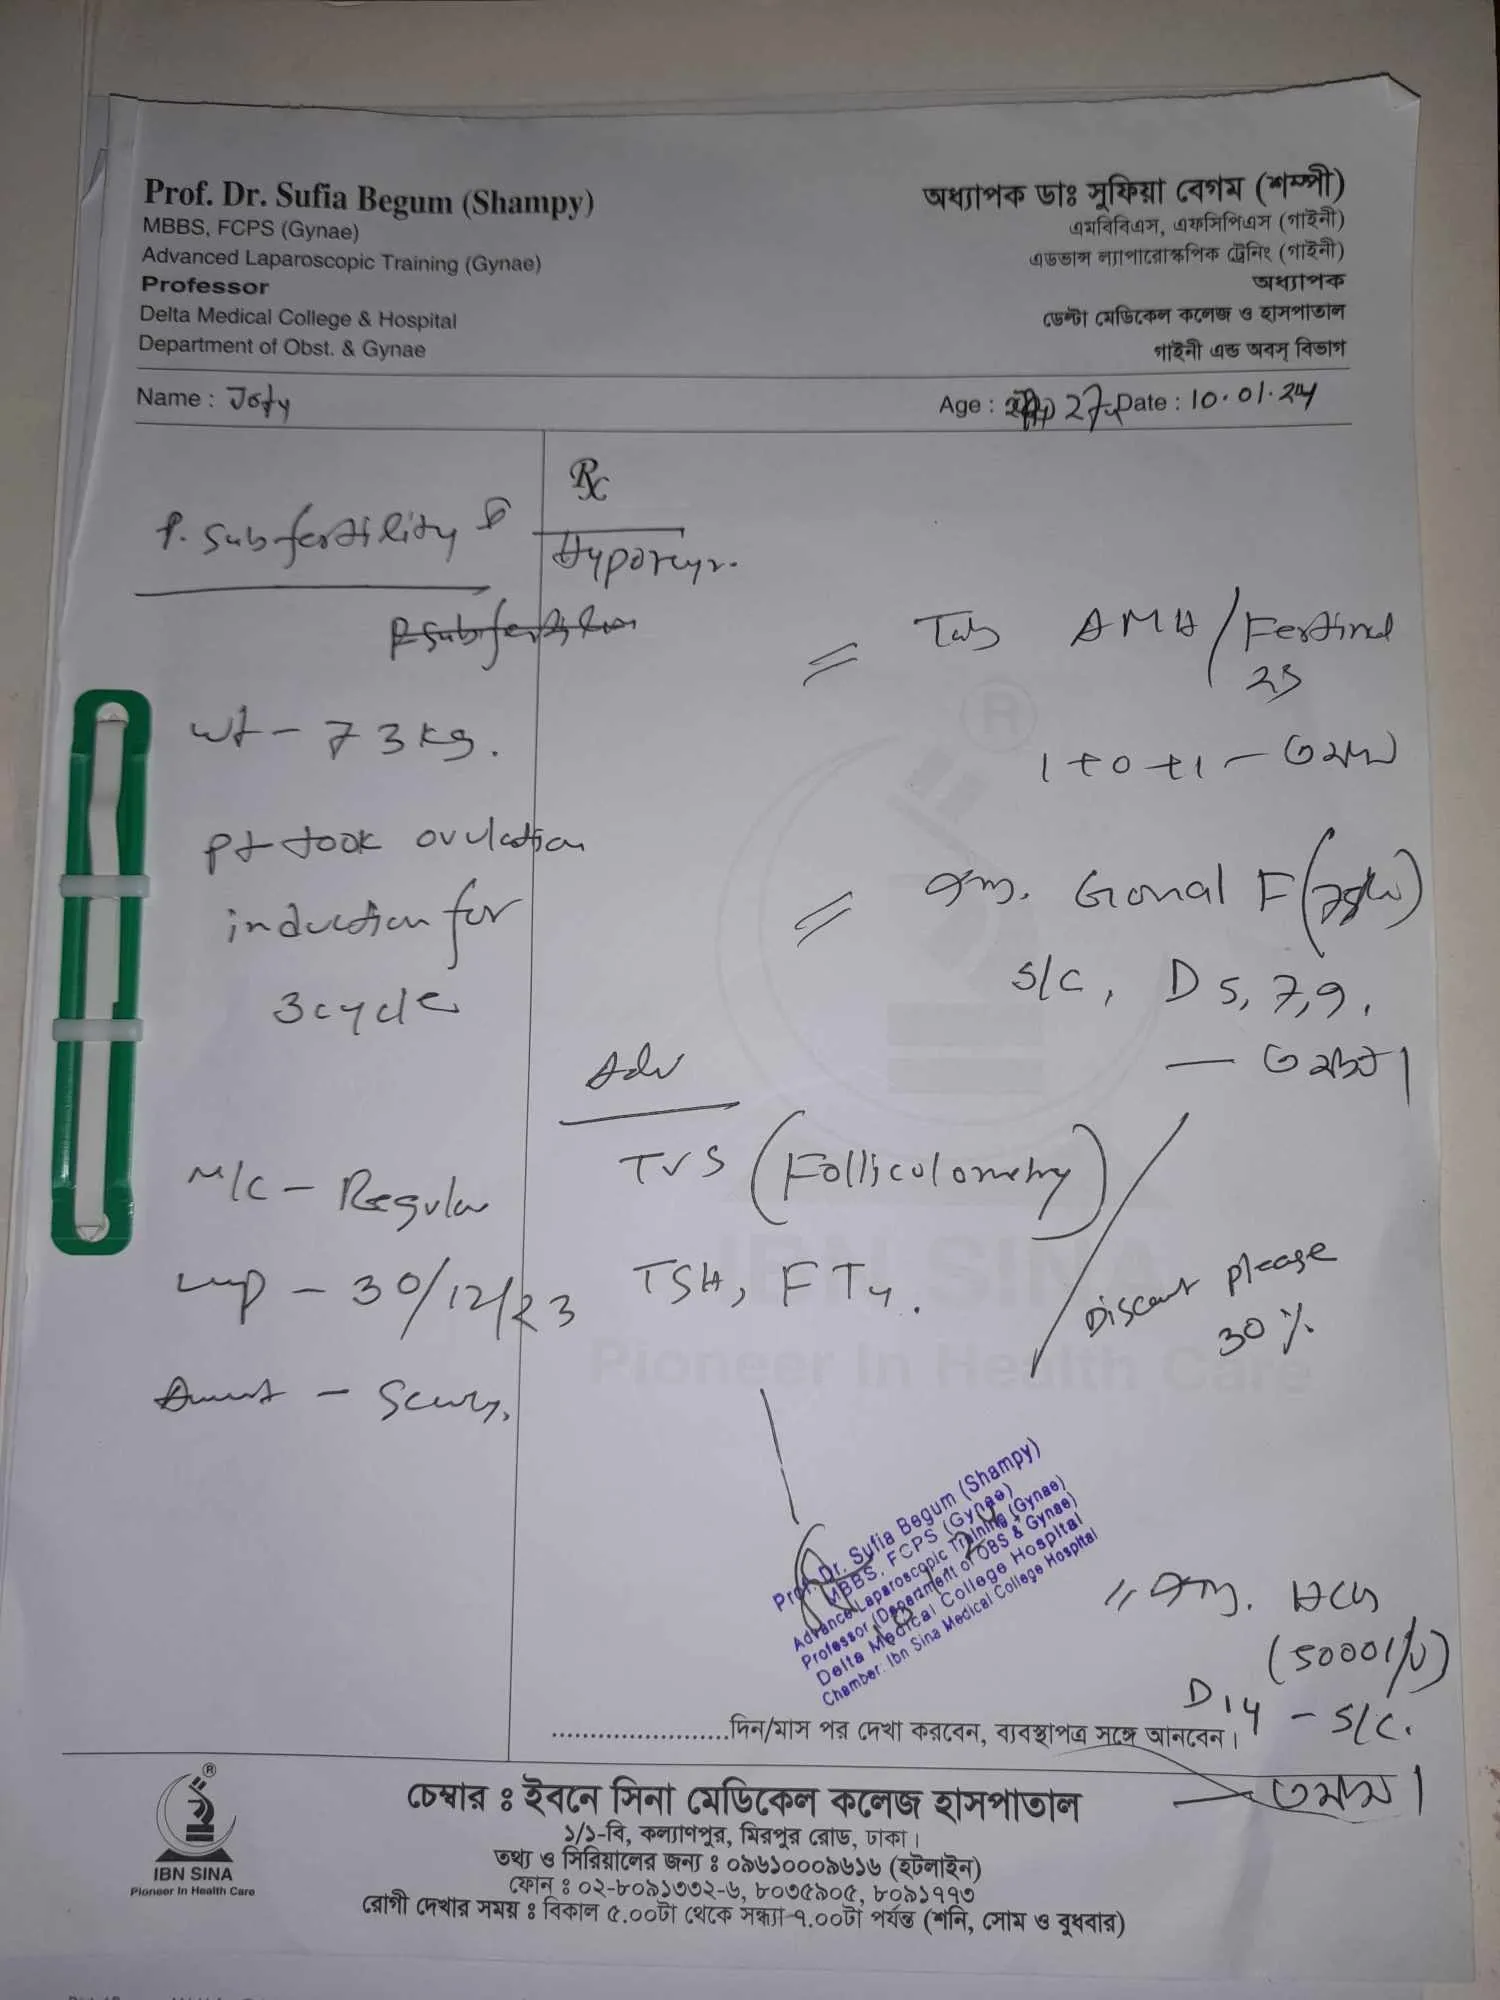 Prof. Dr. Sufia Begum (Shampy)
MBBS, FCPS (Gynae)
Advanced Laparoscopic Training (Gynae)
Professor
Delta Medical College & Hospital
Department of Obst. & Gynae
অধ্যাপক ডাঃ সুফিয়া বেগম (শম্পী)
এমবিবিএস, এফসিপিএস (গাইনী)
এডভান্স ল্যাপারোস্কপিক ট্রেনিং (গাইনী)
অধ্যাপক
ডেল্টা মেডিকেল কলেজ ও হাসপাতাল
গাইনী এন্ড অবস্ বিভাগ
Name : Joty
Age : 27y Date : 10.01.24
P. Subfertility
wt - 73 kg.
pt took ovulation
induction for
3 cycle
M/C - Regular
LMP - 30/12/23
- Scanty.
Rx
Tab AMH/
1+0+1 -
Gonal F
S/C, D 5, 7, 9.
Adv
TVS (Folliculometry)
TSH, FT4.
Discount please
30%
Prof. Dr. Sufia Begum (Shampy)
MBBS, FCPS (Gynae)
Advance Laparoscopic Training (Gynae)
Professor (Department of OBS & Gynae)
Delta Medical College Hospital
Chamber: Ibn Sina Medical College Hospital
HCG
(5000 I/U)
D14 - S/C.
.......................দিন/মাস পর দেখা করবেন, ব্যবস্থাপত্র সঙ্গে আনবেন।
IBN SINA
Pioneer In Health Care
IBN SINA
Pioneer In Health Care
চেম্বার : ইবনে সিনা মেডিকেল কলেজ হাসপাতাল
১/১-বি, কল্যাণপুর, মিরপুর রোড, ঢাকা।
তথ্য ও সিরিয়ালের জন্য : ০৯৬১০০০৯৬১৬ (হটলাইন)
ফোন : ০২-৮০৯১৩৩২-৬, ৮০৩৫৯০৫, ৮০৯১৭৭৩
রোগী দেখার সময় : বিকাল ৫.০০টা থেকে সন্ধ্যা ৭.০০টা পর্যন্ত (শনি, সোম ও বুধবার)